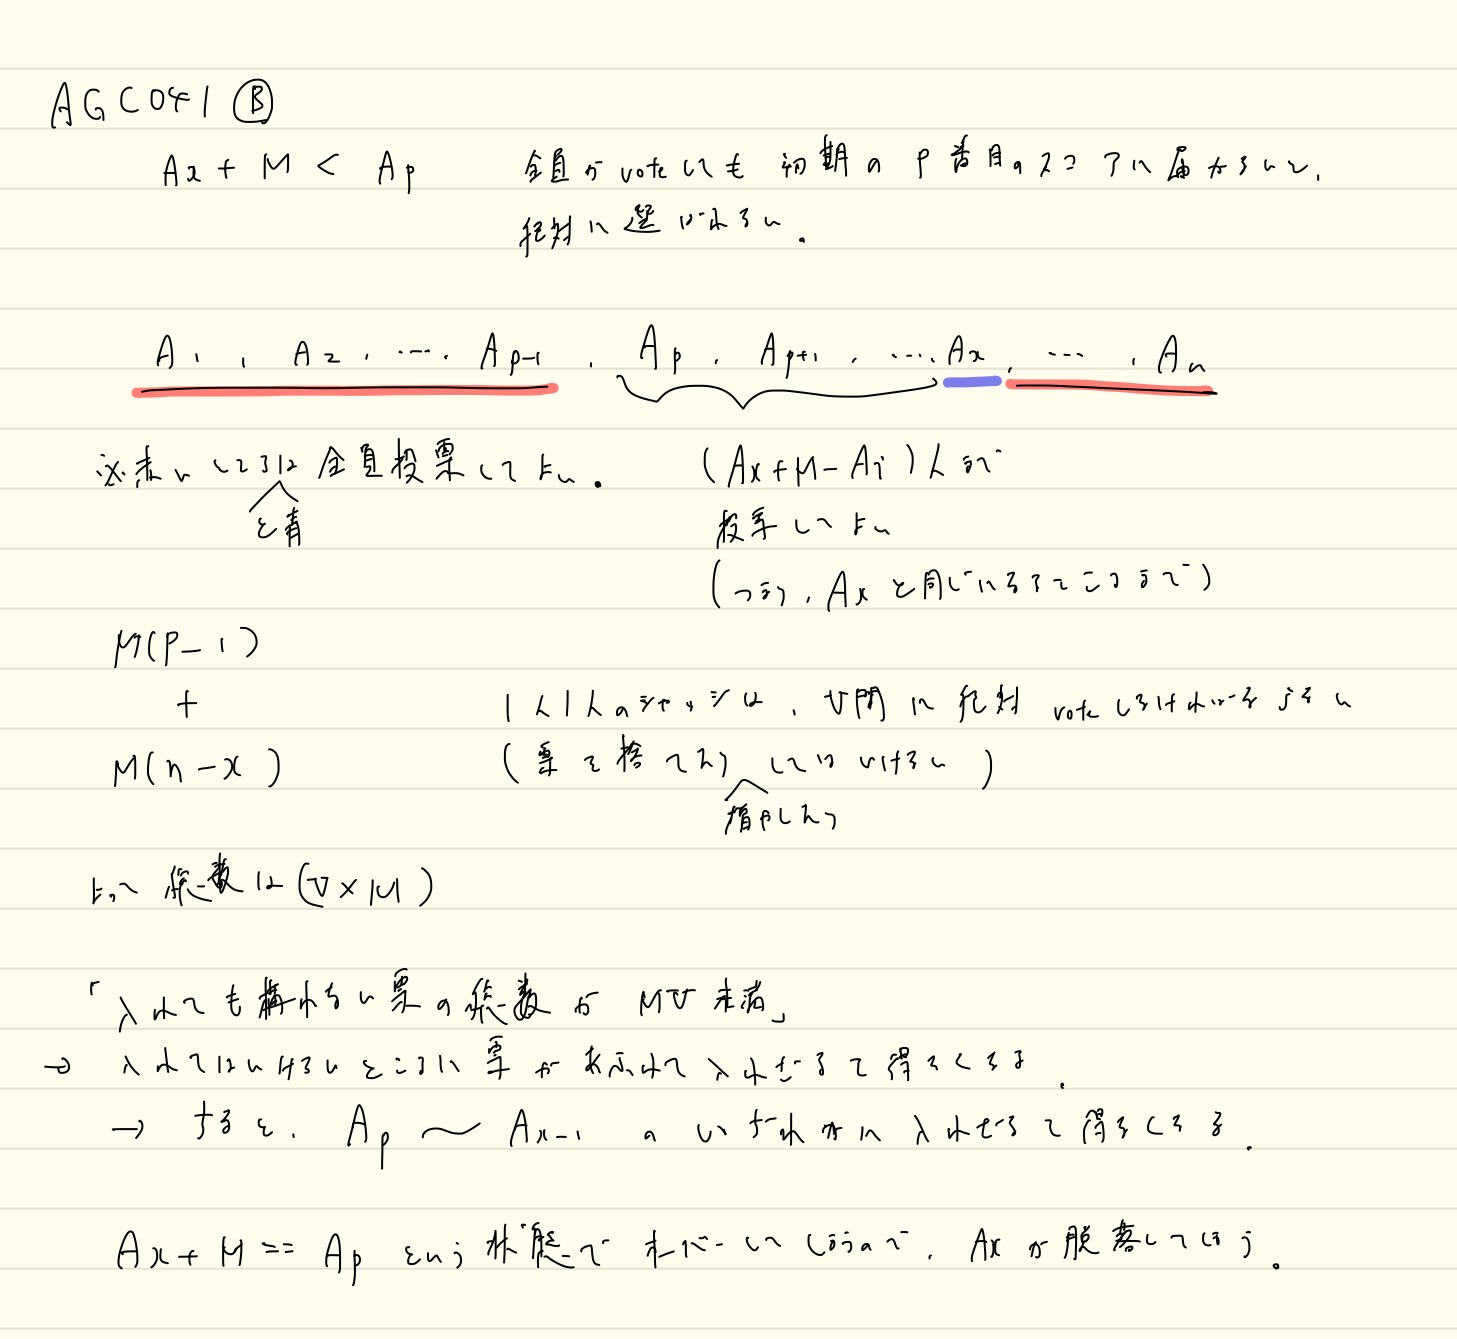 AGC041 Ⓑ
Ax + M < Ap 全員がvoteしても 初期の P番目のスコアに届かないと、
絶対に選ばれない。
A1, A2, ‥‥, Ap-1, Ap, Ap+1, ‥‥, Ax, ‥‥, An
赤いところは 全員投票してよい。 (Ax+M-Ai)人まで
と青 投票してよい
(つまり、Axと同じになるところまで)
M(P-1)
+ 1人1人のジャッジは、V問に絶対 voteしなければならない
M(n-x) (票を捨てたり してはいけない)
増やしたり
よって 総数は(V×M)
「入れても構わない票の総数が MV未満」
→ 入れてはいけないところに票があふれて入れざるを得なくなる.
→ すると、Ap 〜 Ax-1 のいずれかに入れざるを得なくなる.
Ax+M == Ap という状態で オーバーしてしまうので、Axが脱落してしまう。